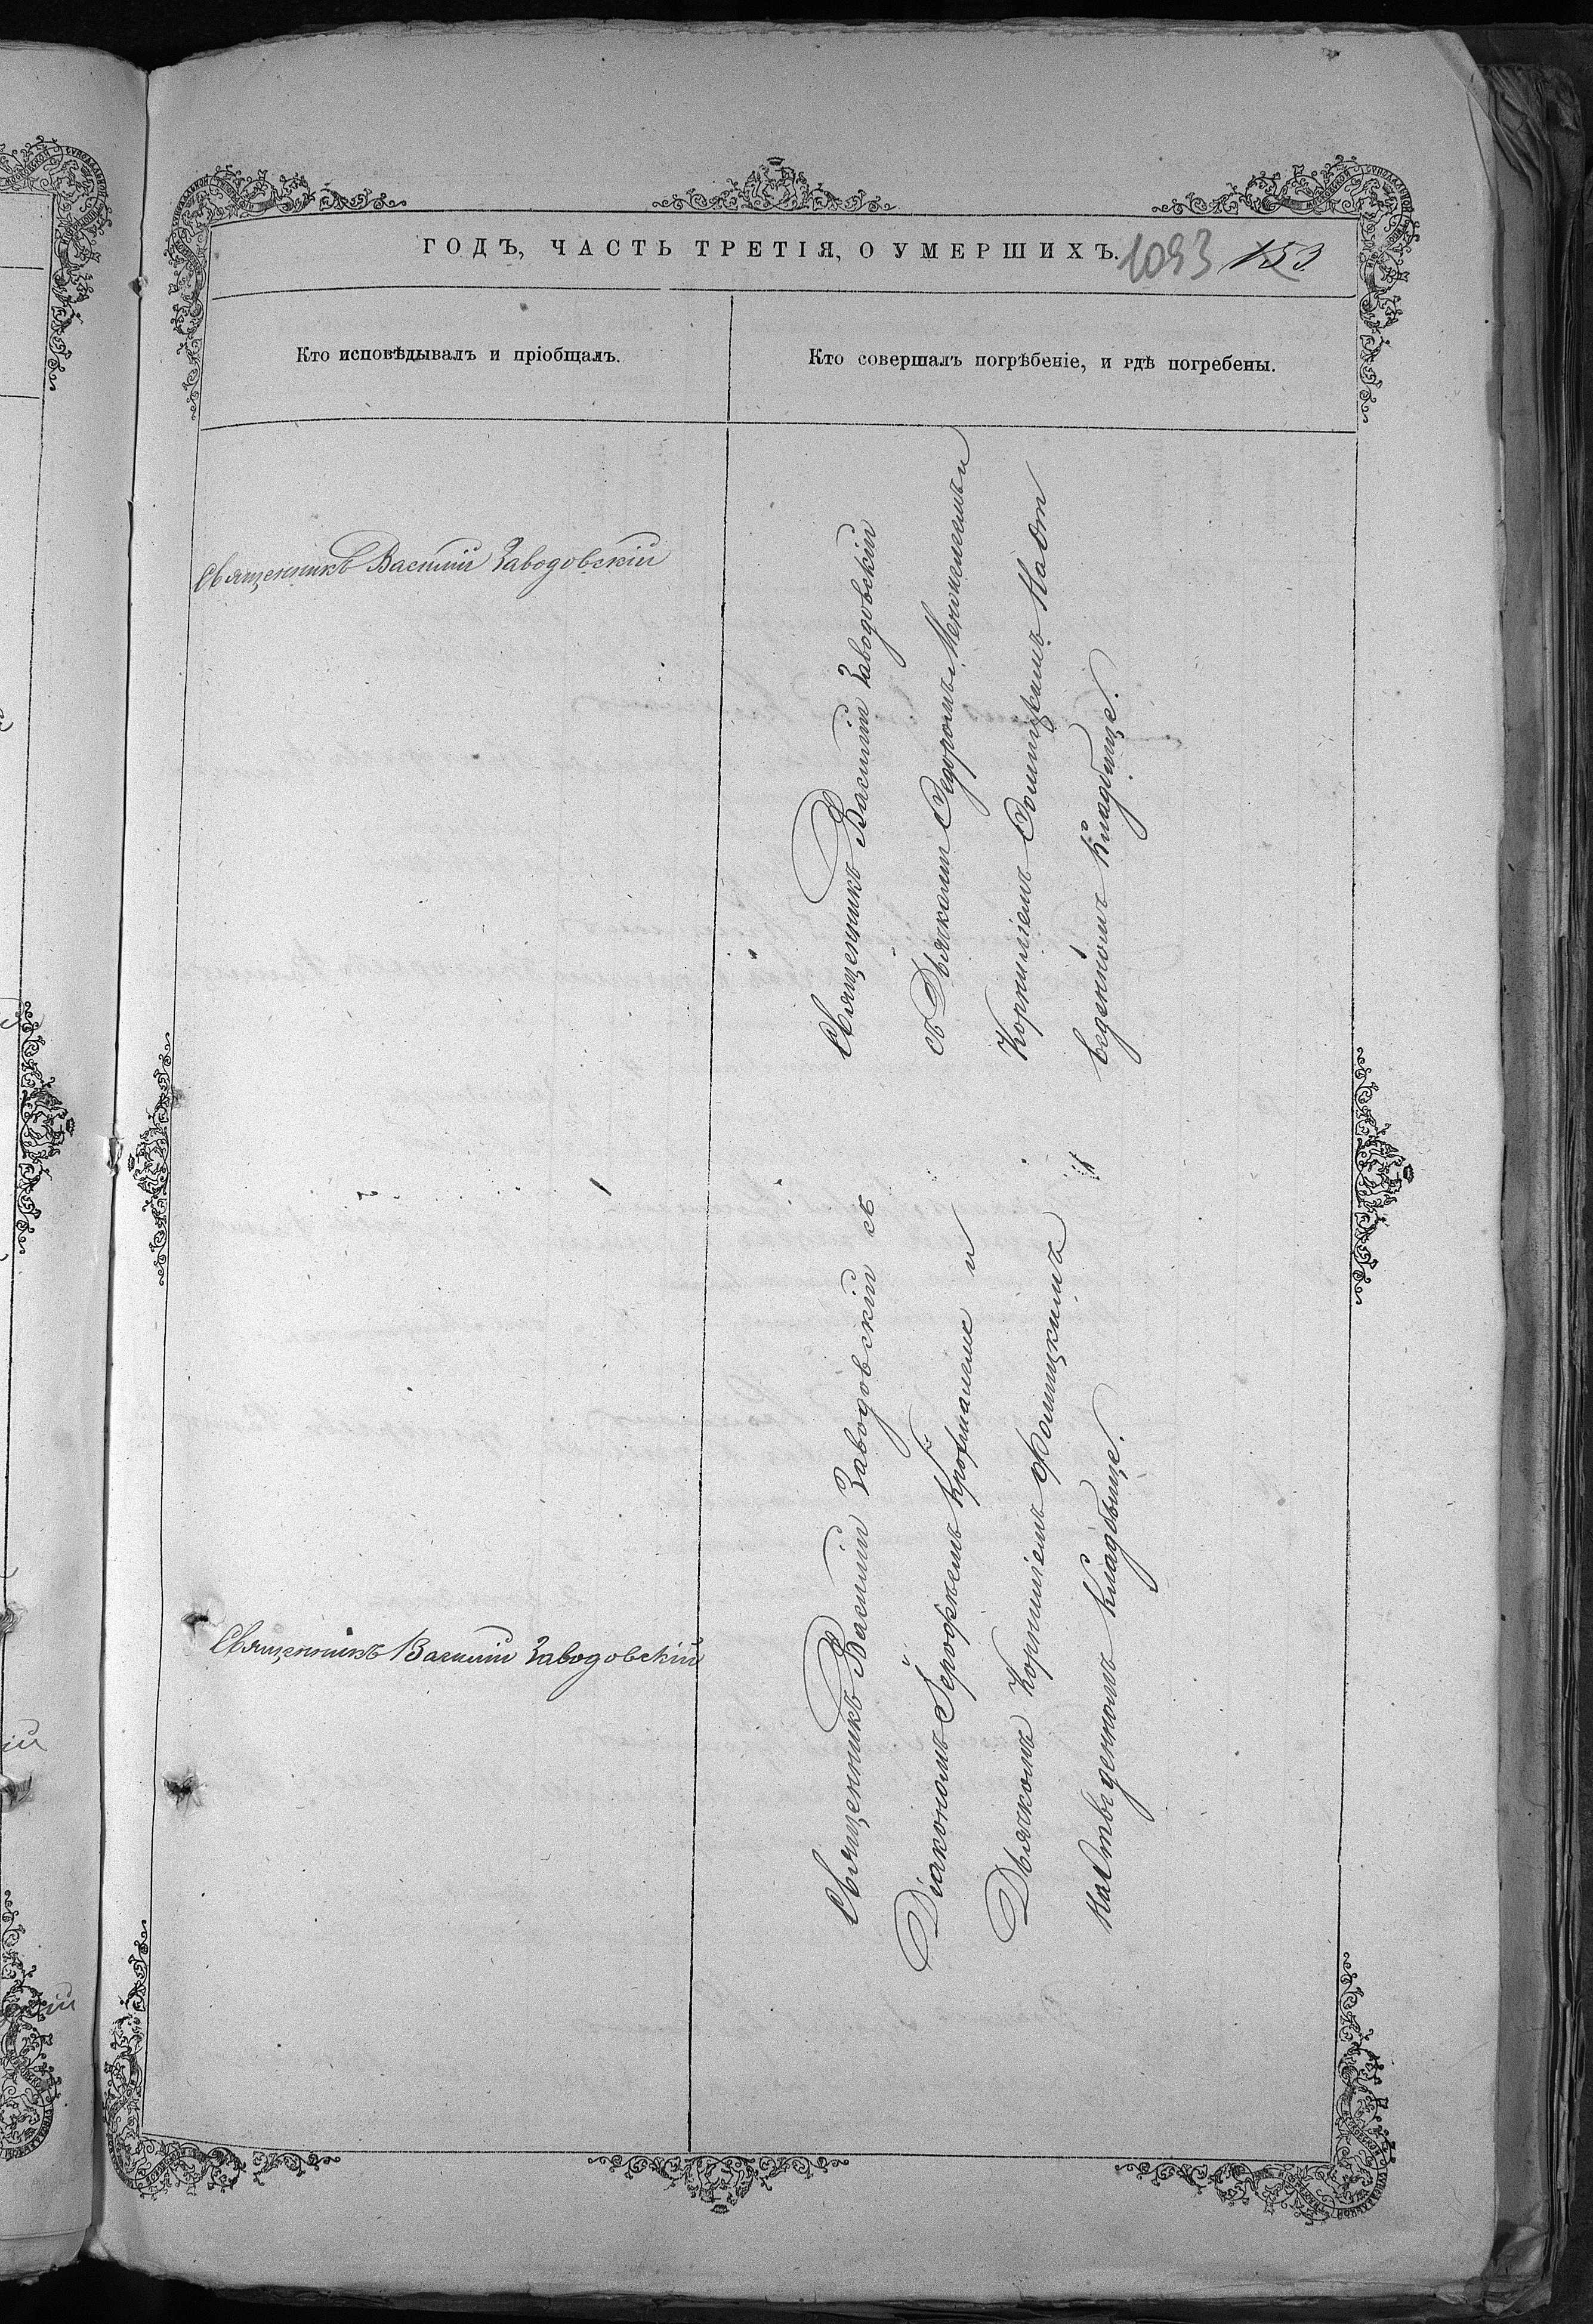 ГОДЪ, ЧАСТЬ ТРЕТІЯ, О УМЕРШИХЪ.
1093 153
Кто исповѣдывалъ и пріобщалъ.
Кто совершалъ погрѣбеніе, и гдѣ погребены.
Священникъ Василій Заводовскій
Священникъ Василій Заводовскій
съ Дьячками Ѳедоромъ и
Корниліемъ Ѳомицкимъ На от
веденномъ Кладбище.
Священникъ Василій Заводовскій
Священникъ Василій Заводовскій съ
Діакономъ и
Дьячкомъ Корниліемъ Фомицкимъ
На Отведенномъ Кладбище.